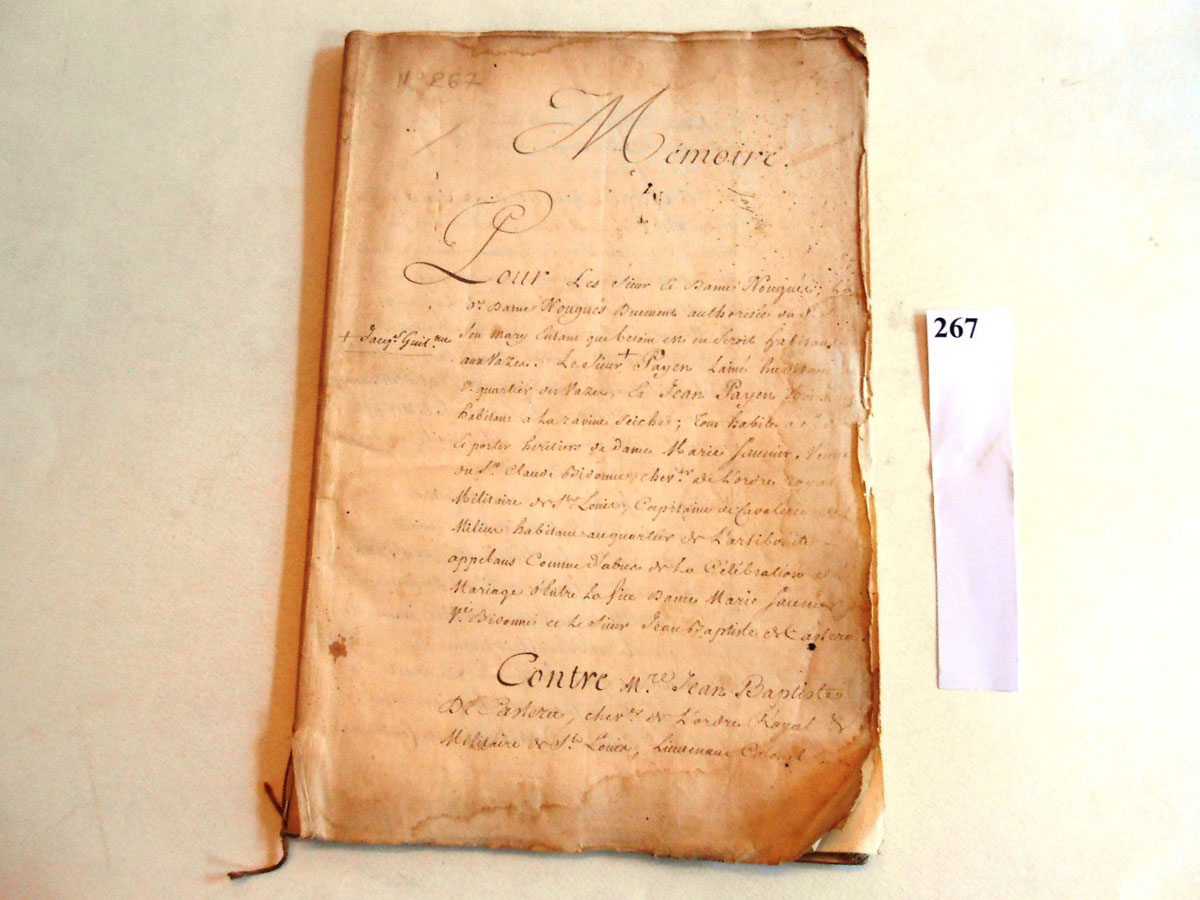 N° 267
Mémoire.
Pour Les Sieur & Dame Nougués;
De. Dame Nougués Duement authorisée du S.
Son mary Entant que besoin est ou Seroit habitans
+ Jacq.s Guil.me
aux Vazes. Le Sieur + Payen Lainé habitant
quartier des Vazes, & Jean Payen
habitant a La ravine Seiche; Tous habiles a
Se porter heritiers de Dame Marie Saunier
du S.r Claude Bidonne, chev.er de L'ordre royal
Militaire de St Louis, Capitaine de Cavalerie
Milices habitant au quartier de L'artibonite
appelans Comme D'abus de La Célébration
Mariage d'Entre La fiee Dame Marie Saunier
Ve. Bidonne et Le Sieur Jean Baptiste de Casterie
Contre M.re Jean Baptiste
De Casterie, chev.r de L'ordre Royal &
Militaire de St Louis, Lieutenant Colonel
267